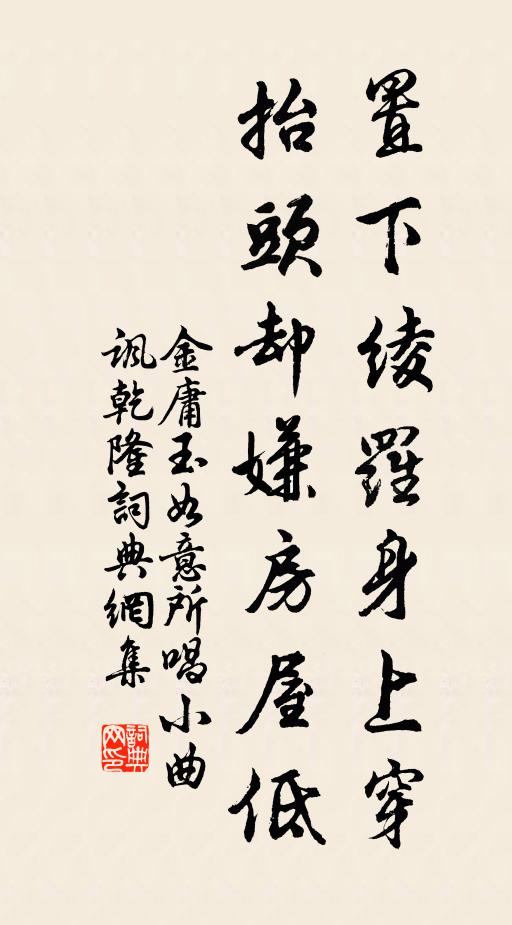 置下綾羅身上穿
抬頭却嫌房屋低
金庸玉如意所唱小曲
諷乾隆詞典網集
詞典
网印